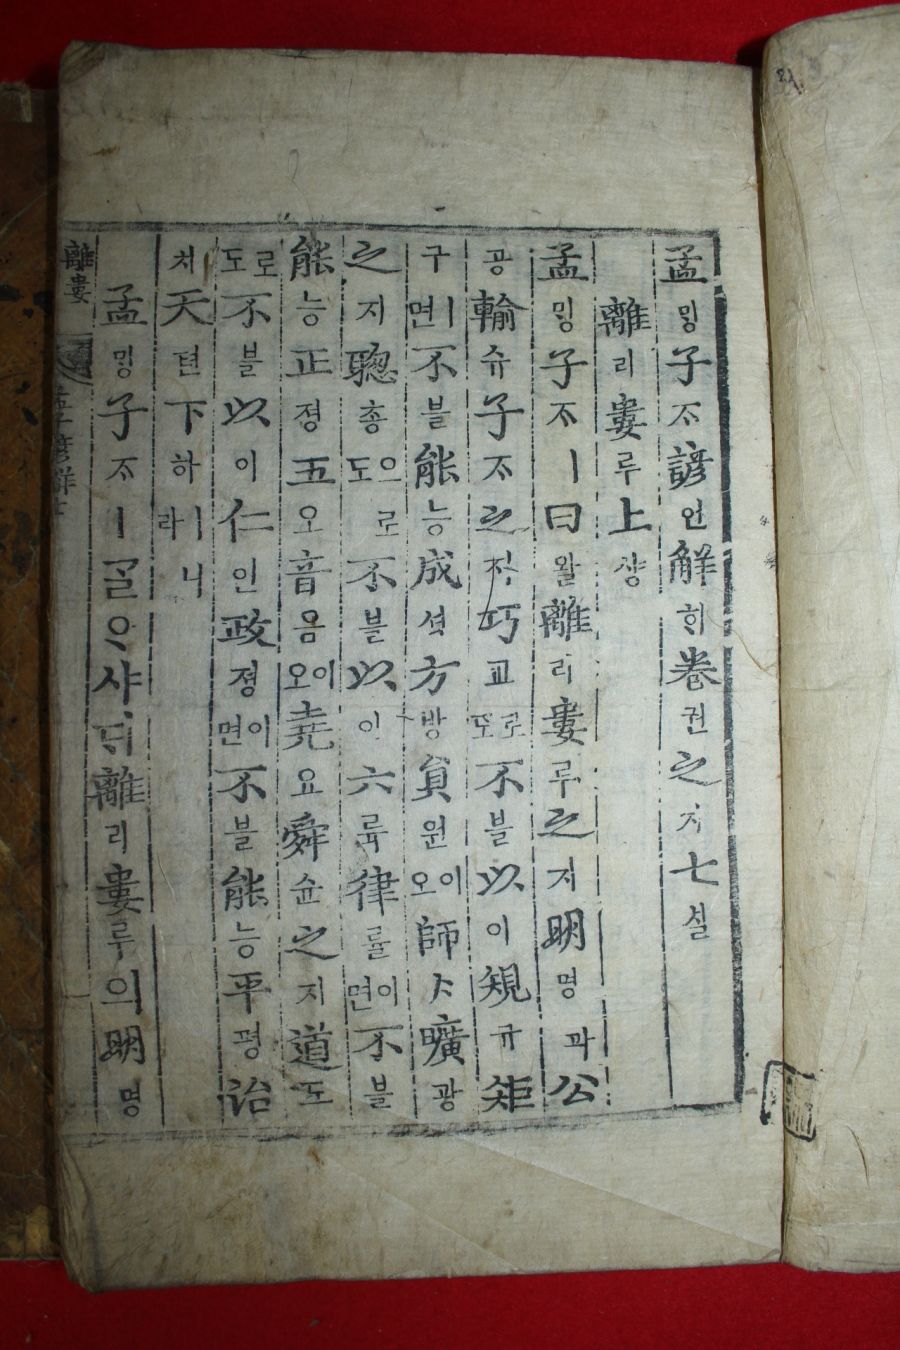 孟밍子ᄌᆞ諺언解ᄒᆡ卷권之지七실
離리婁루上샹
孟밍子ᄌᆞㅣ曰왈離리婁루之지明명과公
공輸슈子ᄌᆞ之지巧교로도不블以이規규矩
구ㅣ면不블能능成셩方방員원이오師ᄉᆞ曠광
之지聰총으로도不블以이六륙律률이면不블
能능正졍五오音음이오堯요舜슌之지道도
로도不블以이仁인政졍이면不블能능平평治
치天텬下하ㅣ니라
孟밍子ᄌᆞㅣᄀᆞᆯᄋᆞ샤ᄃᆡ離리婁루의明명
離婁
孟子諺解七